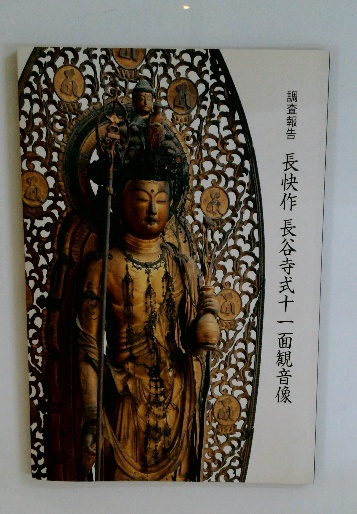 調査報告 長快作 長谷寺式十一面観音像